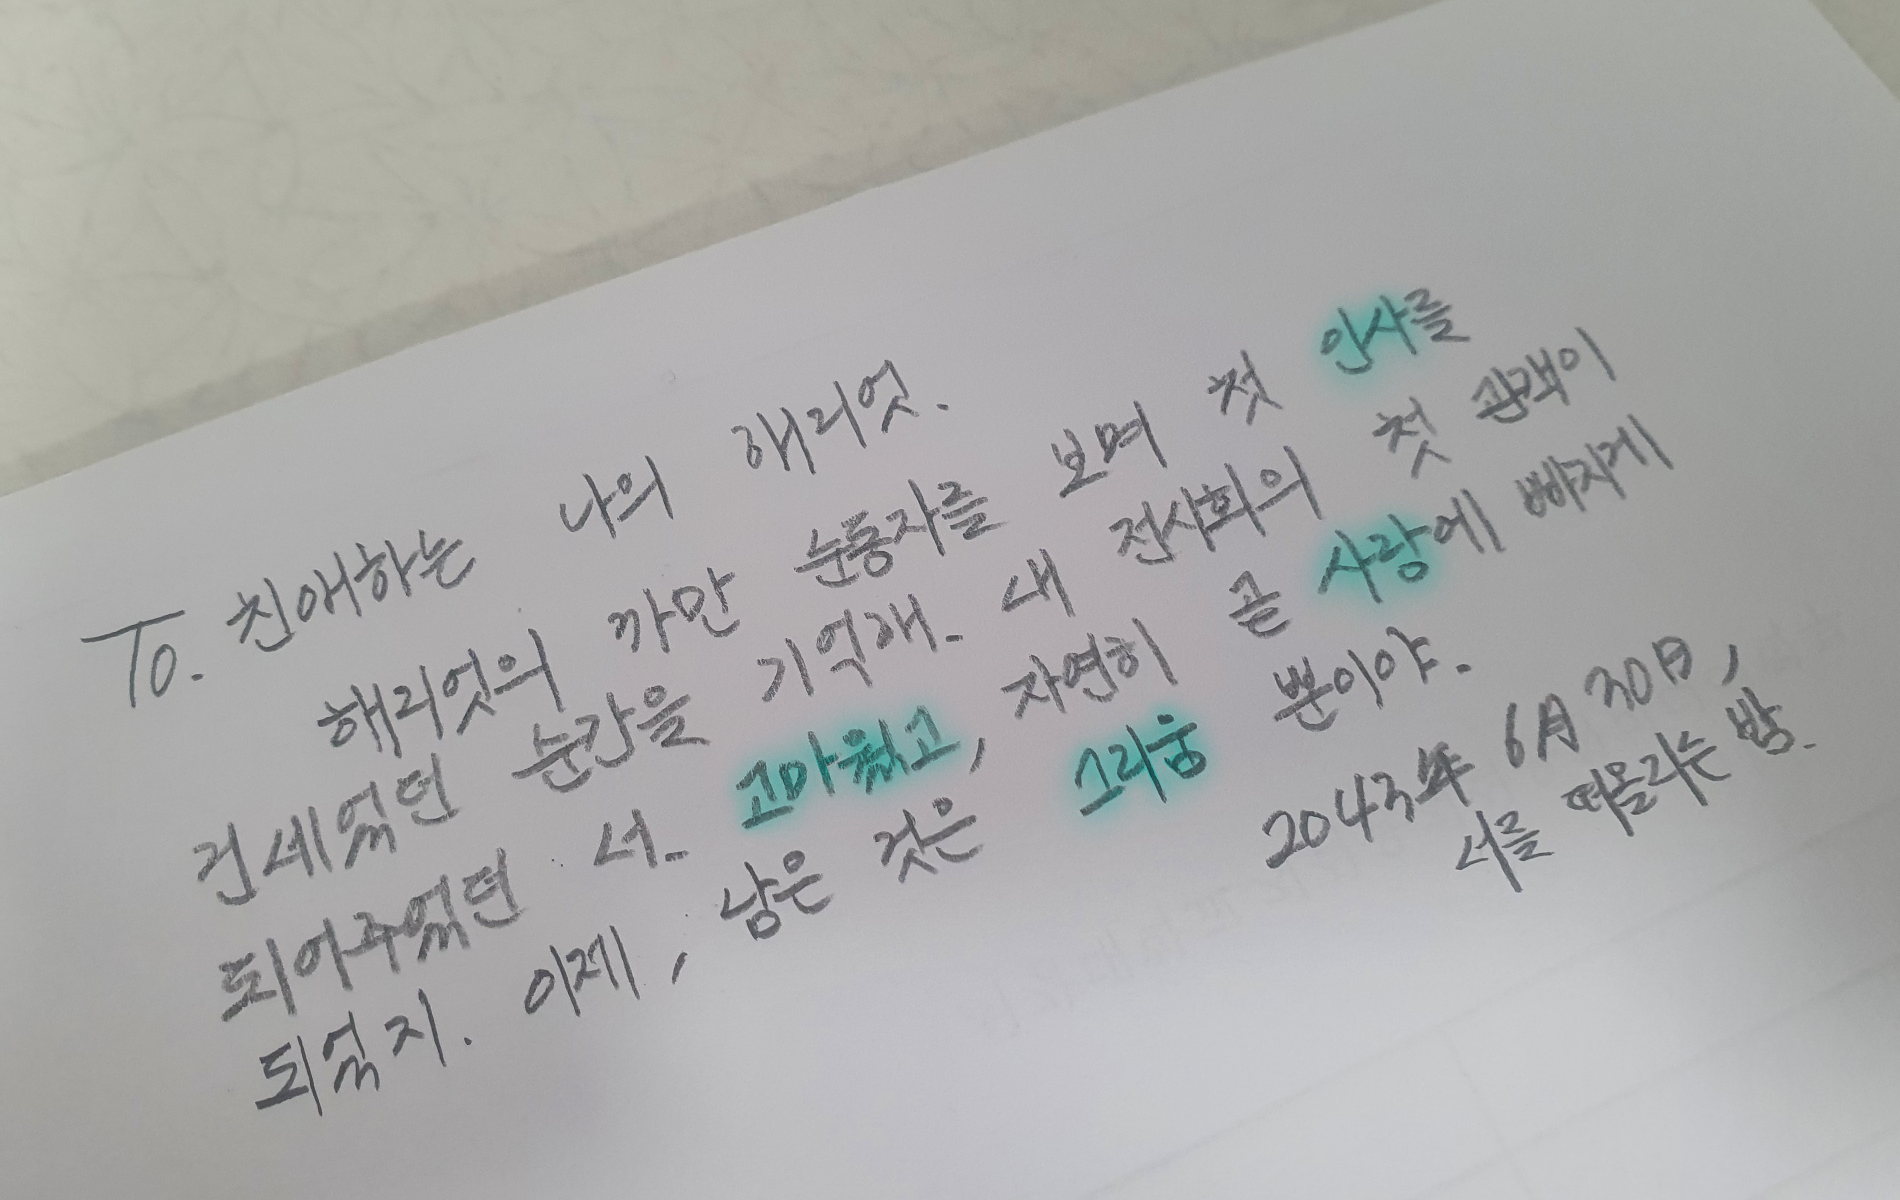 To. 친애하는 나의 해리엇.
해리엇의 까만 눈동자를 보며 첫 인사를
건네었던 순간을 기억해. 내 전시회의 첫 관객이
되어주었던 너. 고마웠고, 자연히 곧 사랑에 빠지게
되었지. 이제, 남은 것은 그리움 뿐이야.
2043年 6月 30日,
너를 떠올리는 밤.